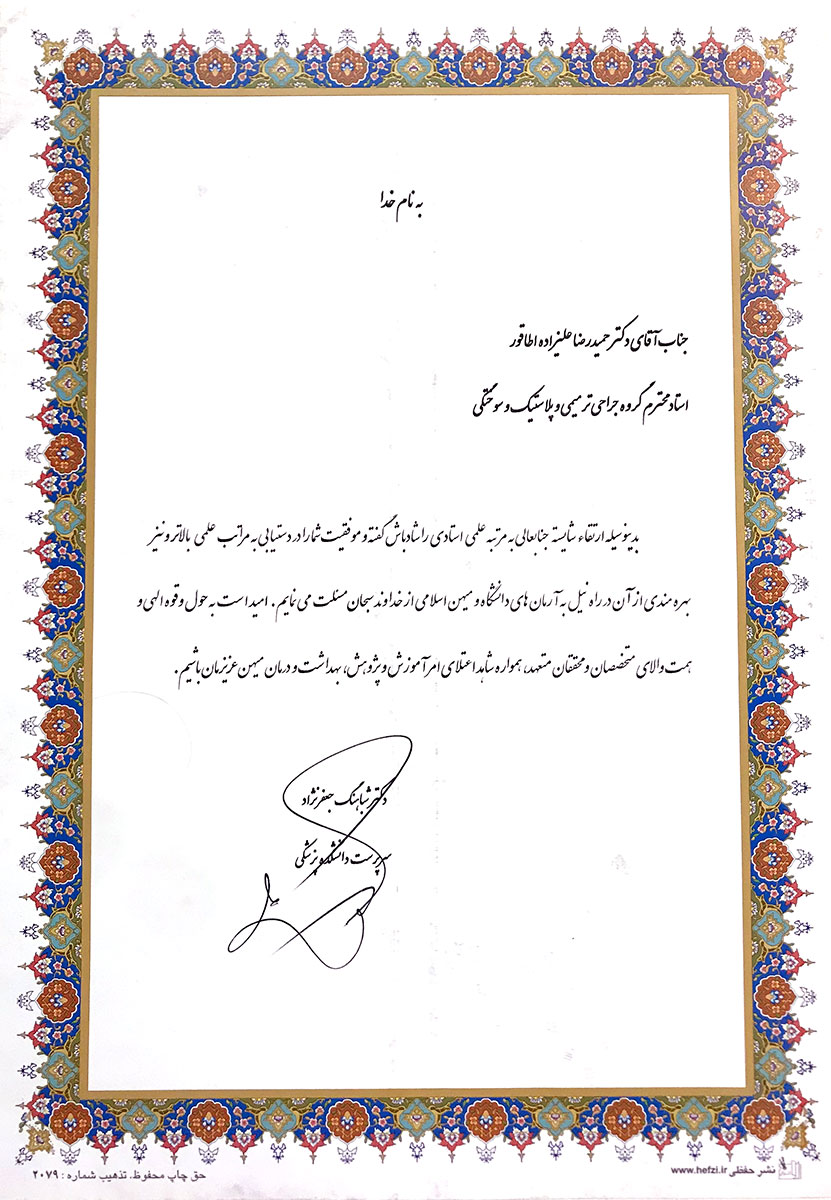 به نام خدا
جناب آقای دکتر حمیدرضا علیزاده اطاقور
استاد محترم گروه جراحی ترمیمی و پلاستیک و سوختگی
بدینوسیله ارتقاء شایسته جنابعالی به مرتبه علمی استادی را شادباش گفته و موفقیت شما را در دستیابی به مراتب علمی بالاتر و نیز
بهره مندی از آن در راه نیل به آرمان های دانشگاه و میهن اسلامی از خداوند سبحان مسئلت می نمایم. امید است به حول و قوه الهی و
همت والای متخصصان و محققان متعهد، همواره شاهد اعتلای امر آموزش و پژوهش، بهداشت و درمان میهن عزیزمان باشیم.
دکتر شباهنگ جعفرنژاد
سرپرست دانشکده پزشکی
نشر حفظی www.hefzi.ir
حق چاپ محفوظ. تذهیب شماره : ۲۰۷۹